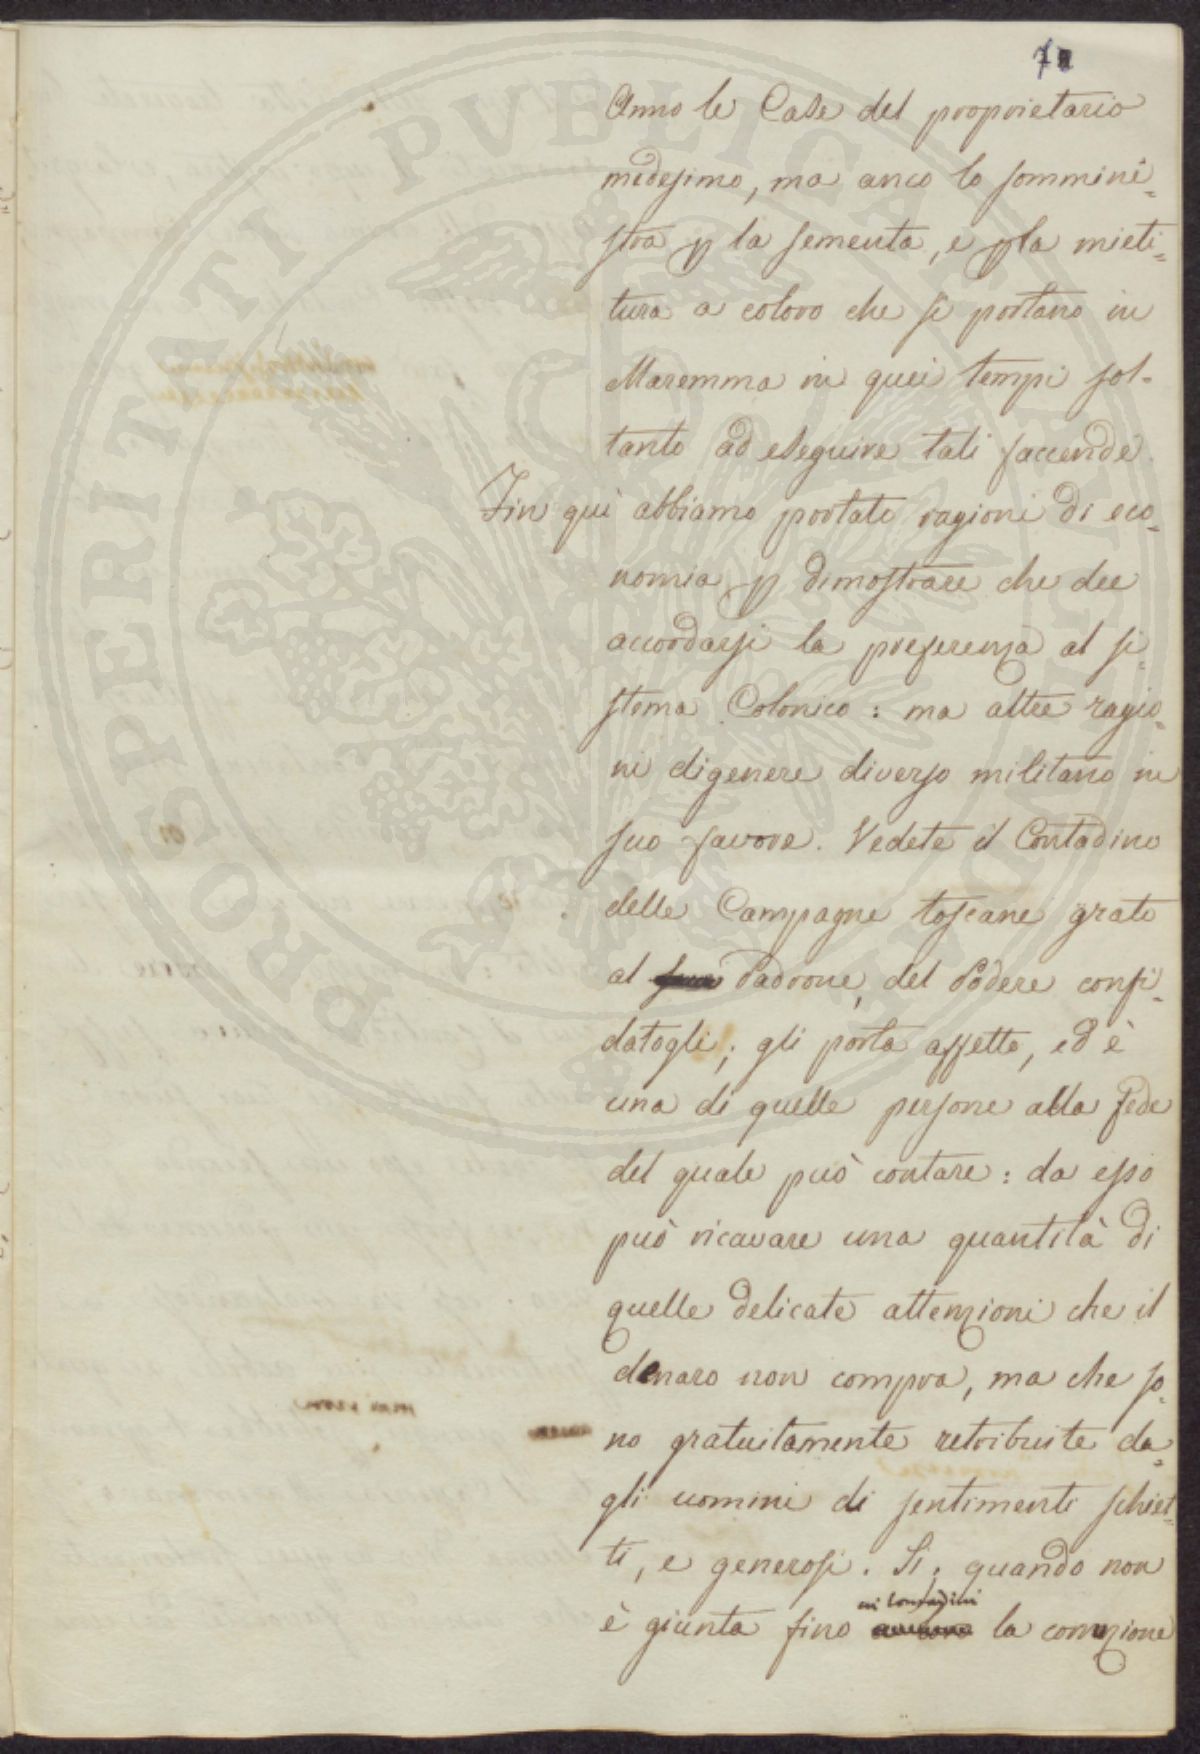 Anno le Case del proprietario
medesimo, ma anco lo sommini=
stra p la sementa, e p la mieti=
tura a coloro che si portano in
Maremma in quei tempi sol-
tanto ad eseguire tali faccende.
Fin quì abbiamo portate ragioni di eco=
nomia p dimostrare che dee
accordarsi la preferenza al si=
stema Colonico: ma altre ragio=
ni di genere diverso militano in
suo favore. Vedete il Contadino
delle Campagne toscane grato
al suo Padrone, del Podere confi=
datogli; gli porta affetto, ed è
una di quelle persone alla fede
del quale può contare: da esso
può ricavare una quantità di
quelle delicate attenzioni che il
denaro non compra, ma che so=
no gratuitamente retribuite da=
gli uomini di sentimenti schiet=
ti, e generosi. Si; quando non
ai Contadini
è giunta fino la corruzione
PROSPERITATI PVBLICAE